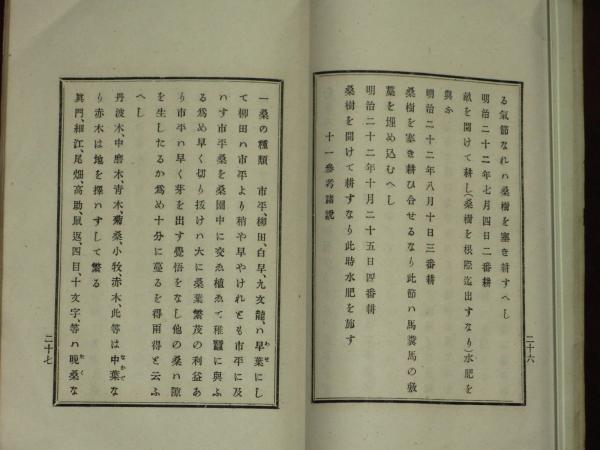 る氣節なれハ桑樹を塞き耕すへし
明治二十二年七月四日二番耕
畝を開けて耕し(桑樹を根際迄出すなり)水肥を
與ふ
明治二十二年八月十日三番耕
桑樹を塞き耕ひ合せるなり此節ハ馬糞馬の敷
藁を埋め込むへし
明治二十二年十月二十五日四番耕
桑樹を開けて耕すなり此時水肥を施す
十一參考諸説
二十六
一桑の種類 市平、柳田、白早、九文龍、ハ早葉にし
て柳田ハ市平より稍や早やけれとも市平に及
ハす市平桑を桑園中に交ゑ植ゑて稚蠶に與ふ
る爲め早く切り拔けハ大に桑葉繁茂の利益あ
り市平ハ早く芽を出す覺悟をなし他の桑ハ隙
を生したるか爲め十分に蔓るを得兩得と云ふ
へし
丹波木、中磨木青木菊桑、小牧、赤木、此等は中葉な
り赤木は地を擇ハすして繁る
眞門、細江、尾畑高助、鼠返、四目、十文字、等ハ晩桑な
二十七
わせ
なかて
おく